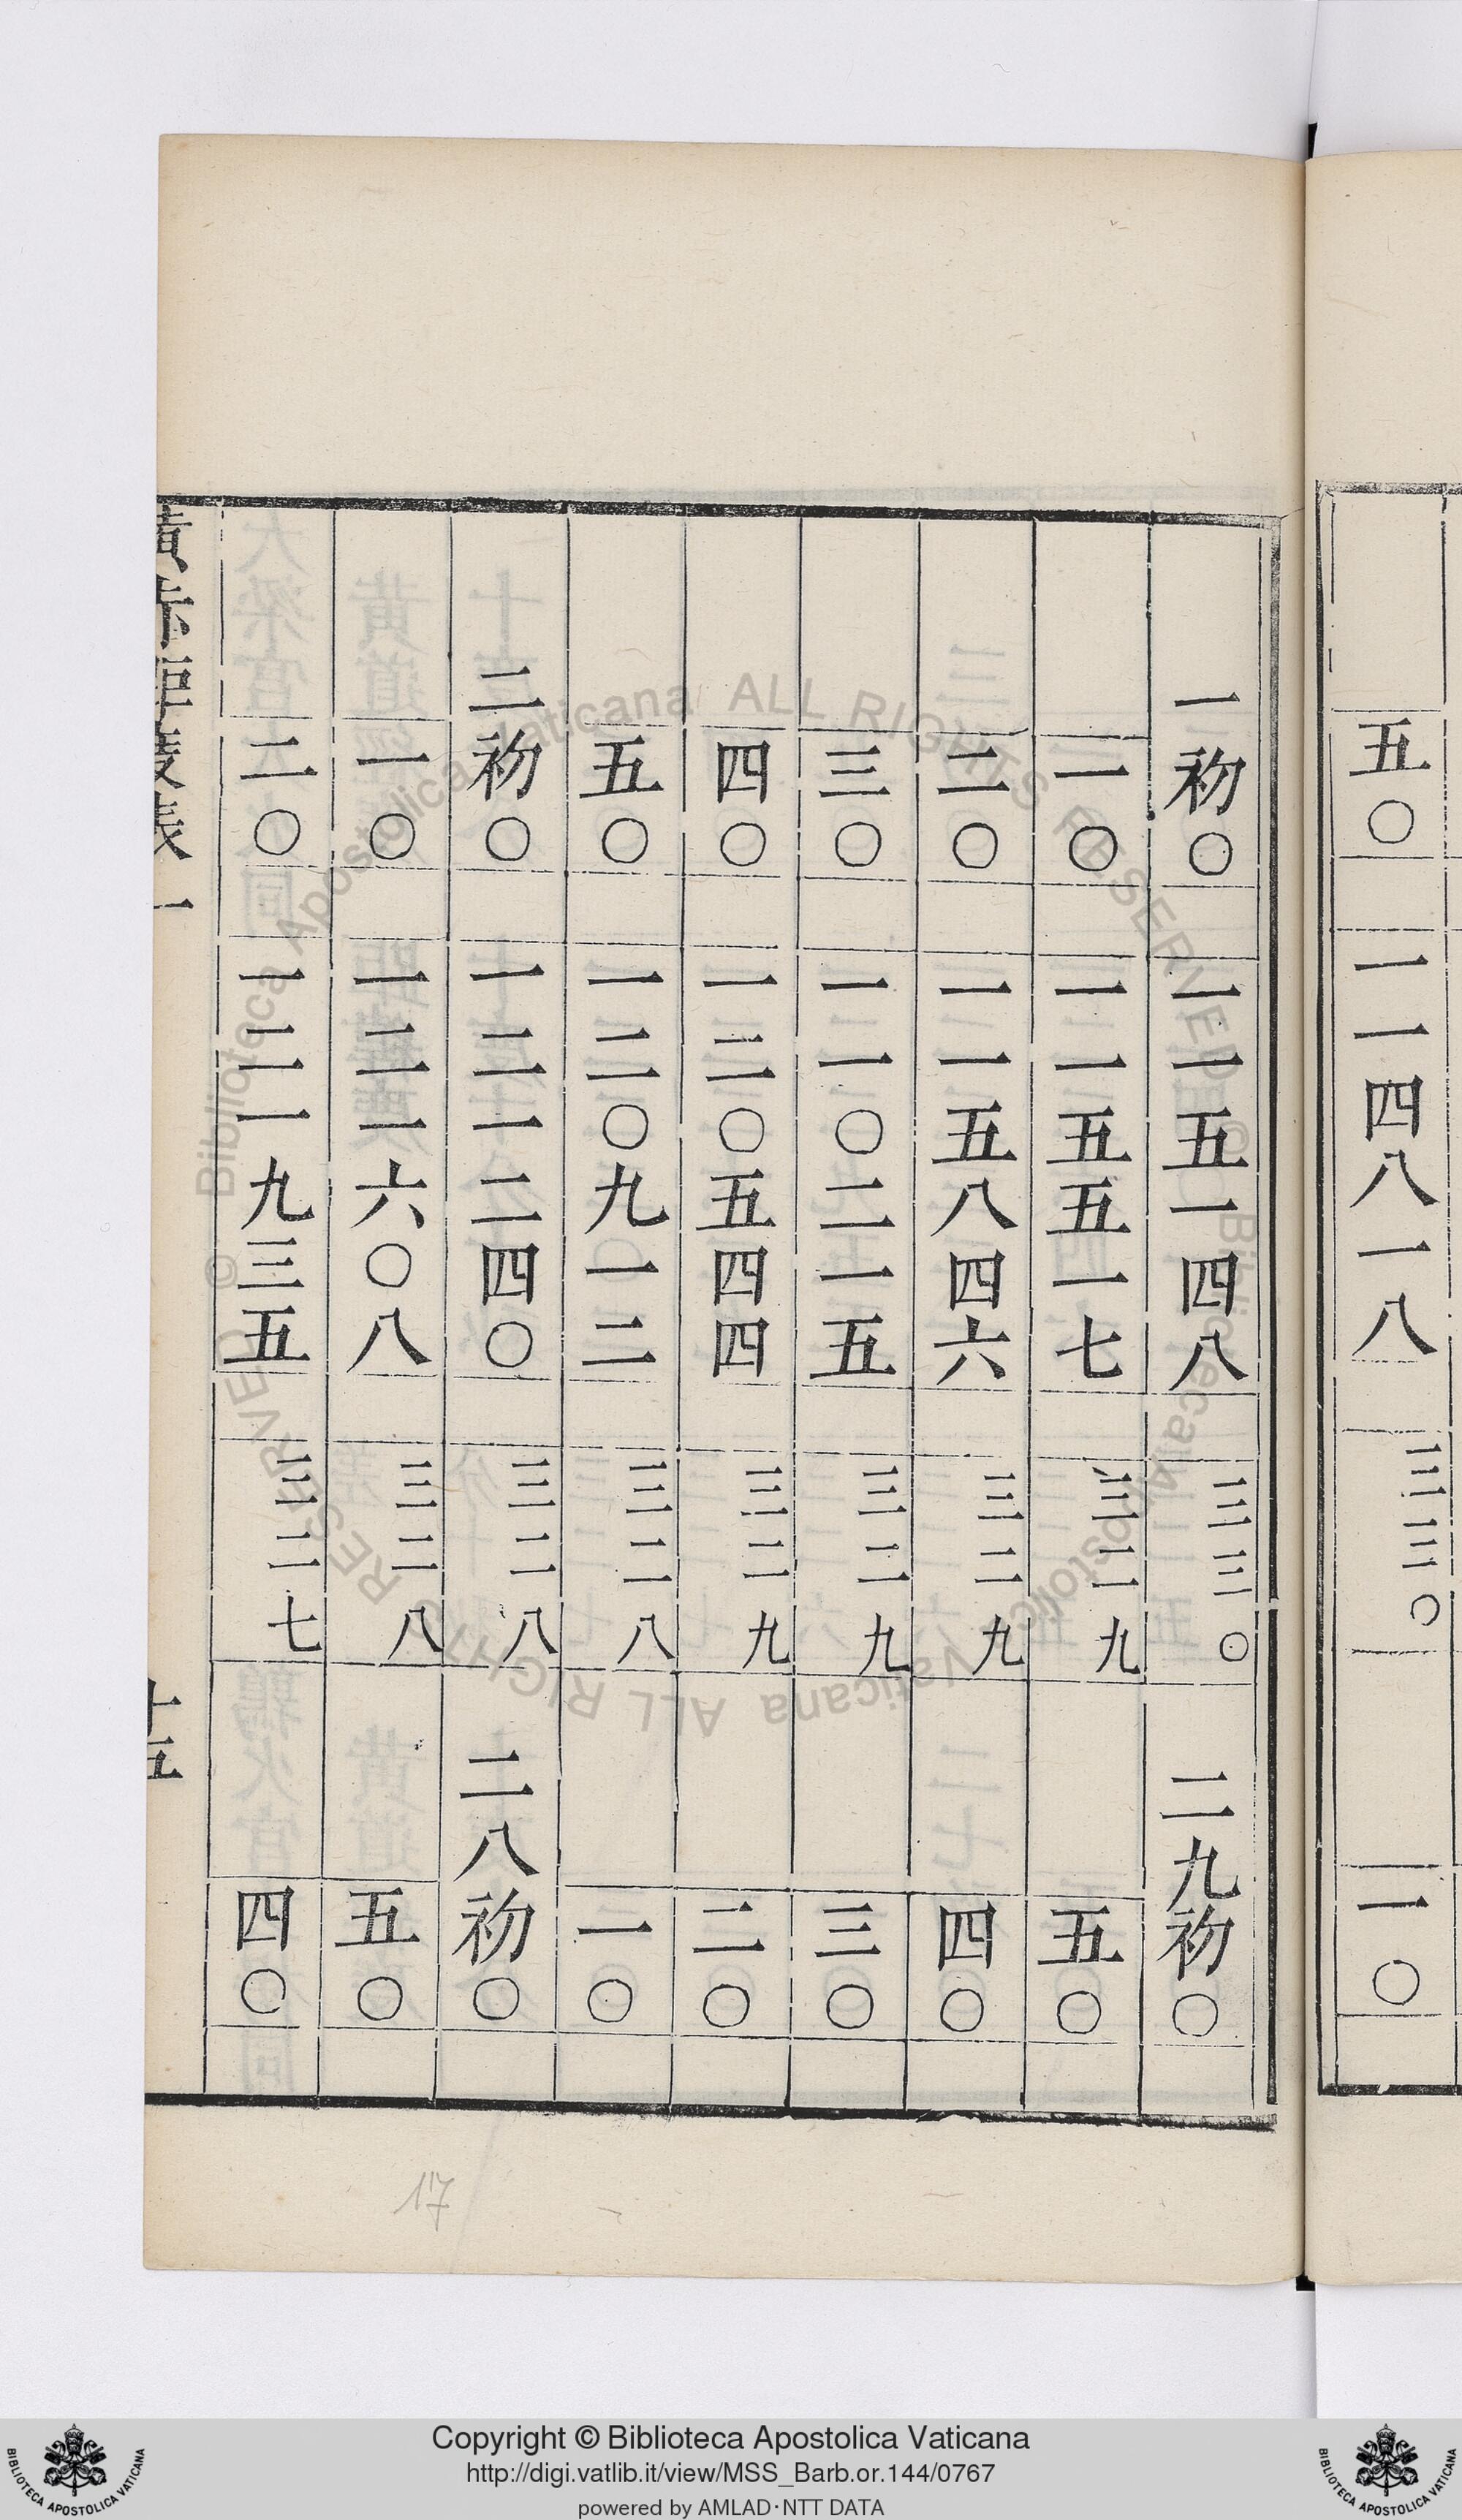 五〇 一一四八一八 三三〇 一〇
一初〇 一一五一四八 三三〇 二九初〇
一〇 一一五五一七 三二九 五〇
二〇 一一五八四六 三二九 四〇
三〇 一一〇二一五 三二九 三〇
四〇 一二〇五四四 三二九 二〇
五〇 一二〇九一二 三二八 一〇
二初〇 一二一二四〇 三二八 二八初〇
一〇 一二一六〇八 三二八 五〇
二〇 一二一九三五 三二七 四〇
17
Copyright © Biblioteca Apostolica Vaticana
http://digi.vatlib.it/view/MSS_Barb.or.144/0767
powered by AMLAD·NTT DATA